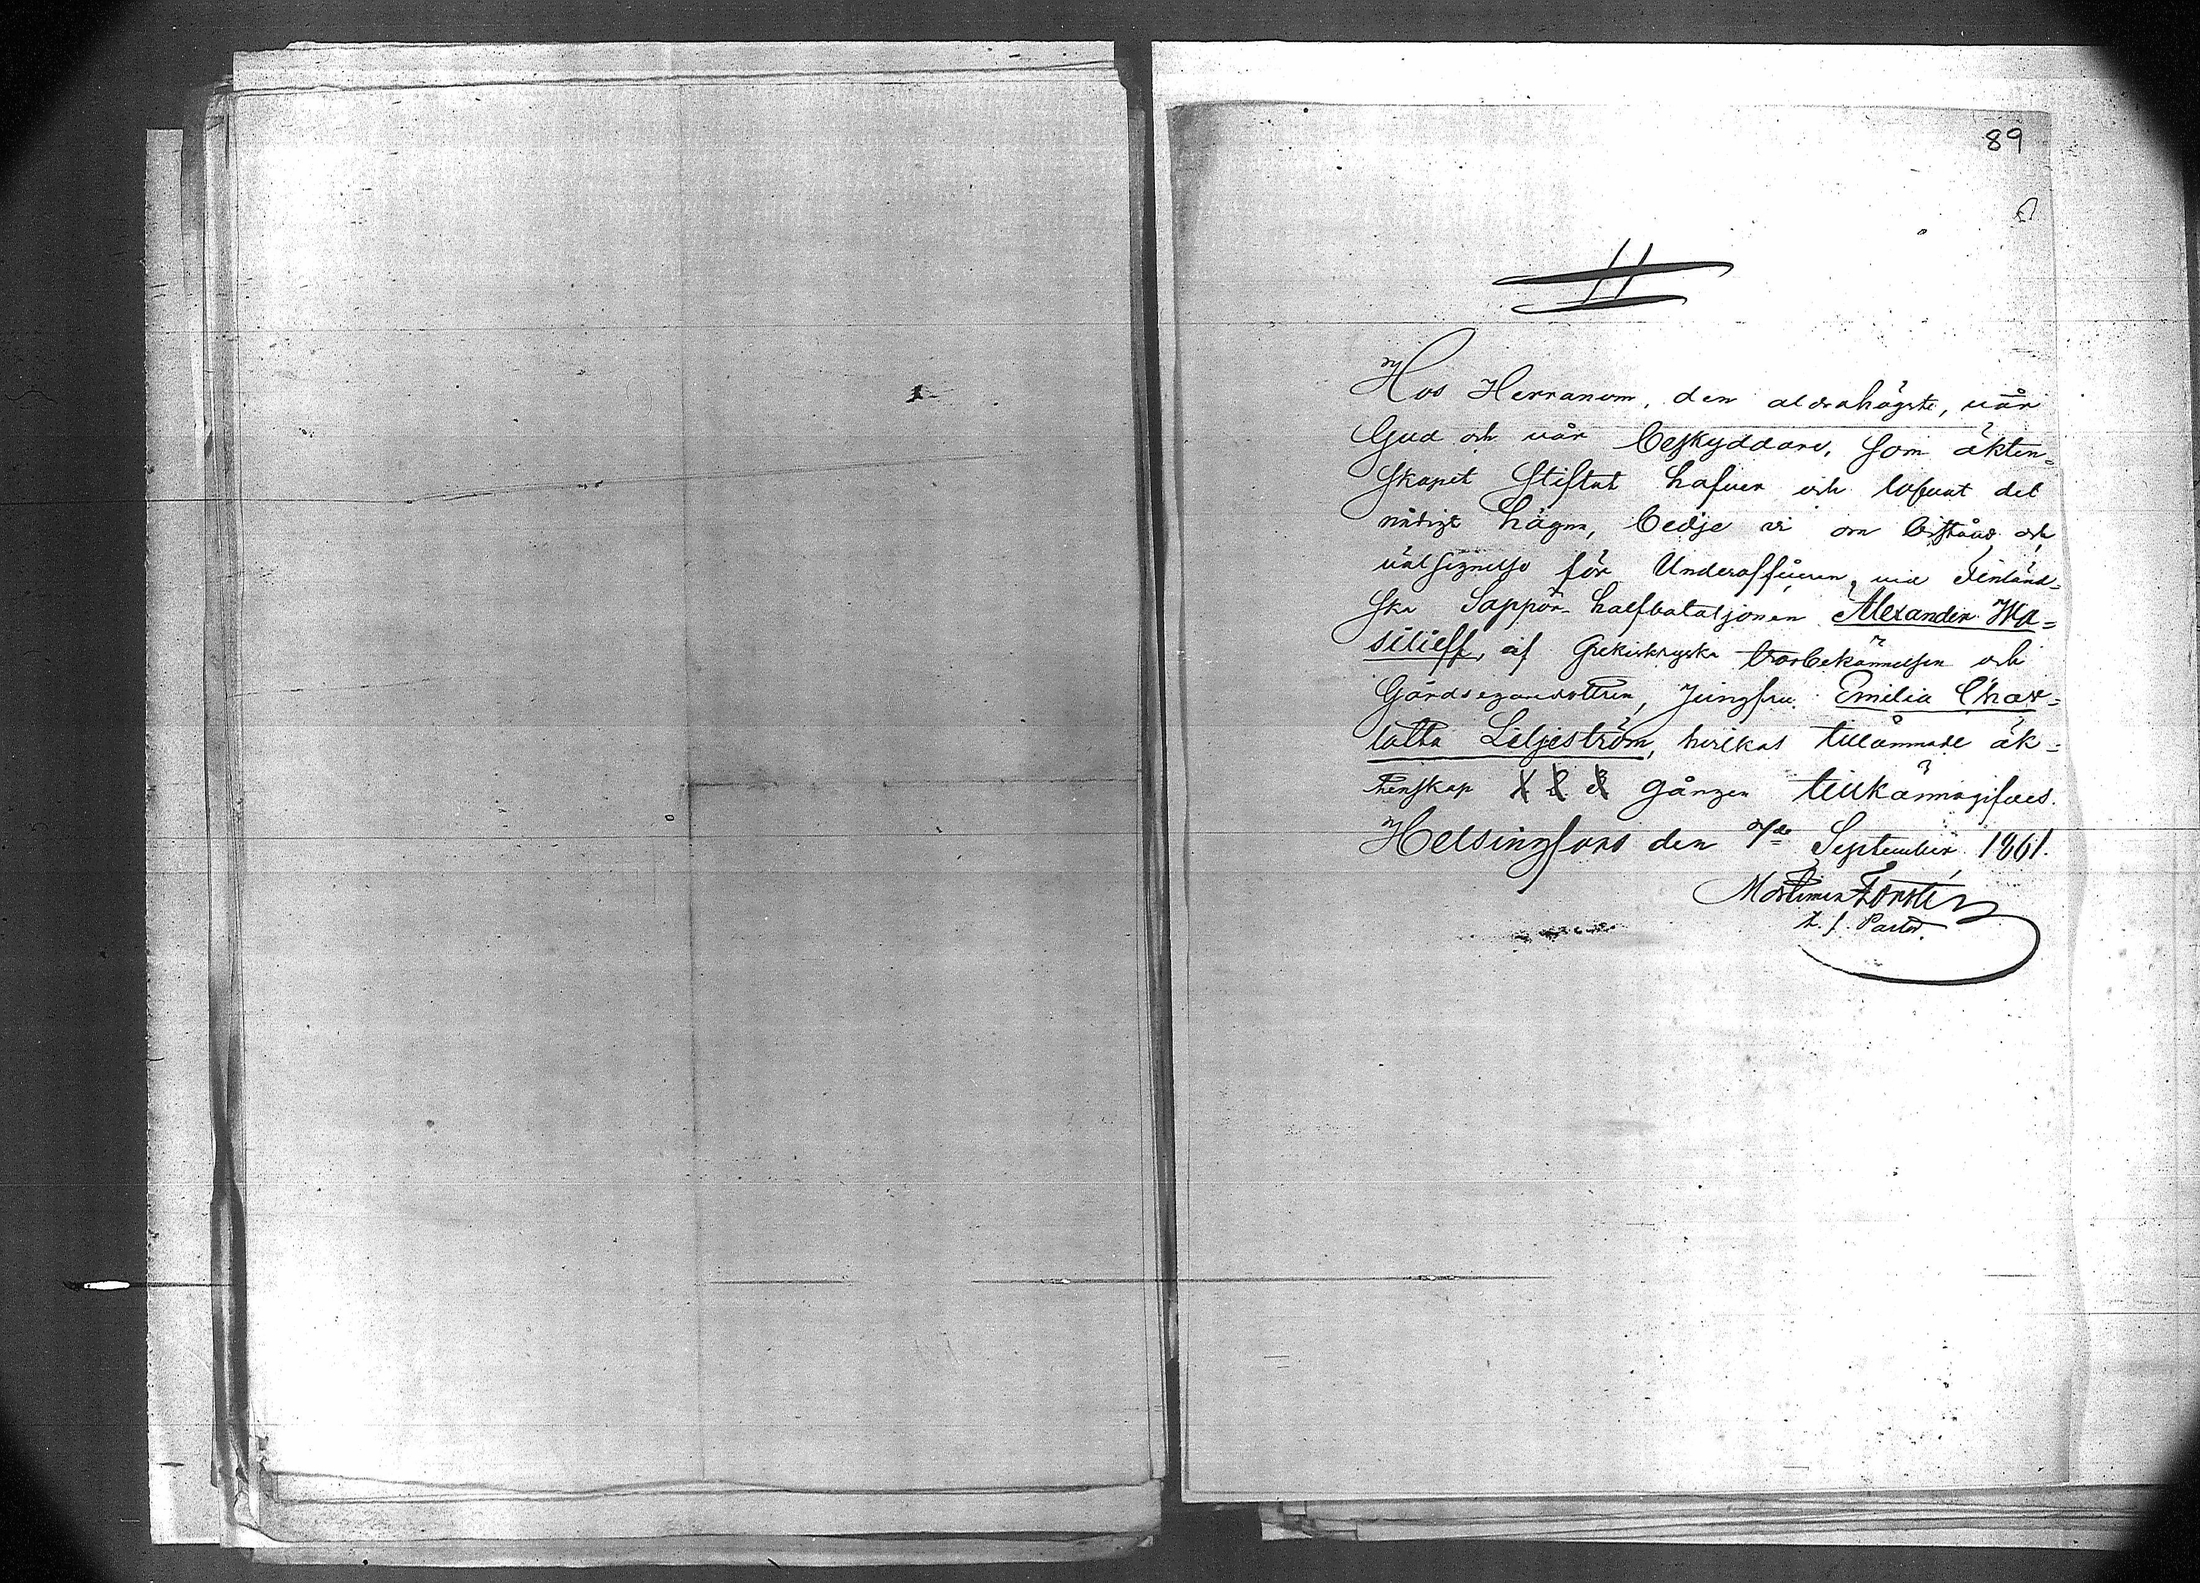 89
Hos Herranom, den aldrahögste, vår
Gud och vår beskyddare, som äkten=
skapet stiftat hafver och lofvat det
nådigt hägna, bedje vi om bistånd och
välsignelse för Underofficeren vid Finländ=
ska Sappör-halfbataljonen Alexander Wa=
silieff, af Grekiskryska trosbekännelsen och
Gårdsegaredottren, Jungfru Emilia Char=
lotta Liljeström, hvilkas tillämnade äk=
tenskap 1 2 3 gången tillkännagifves.
Helsingfors den 7de September 1861.
Mortimer Forstén
t. f. Pastor.